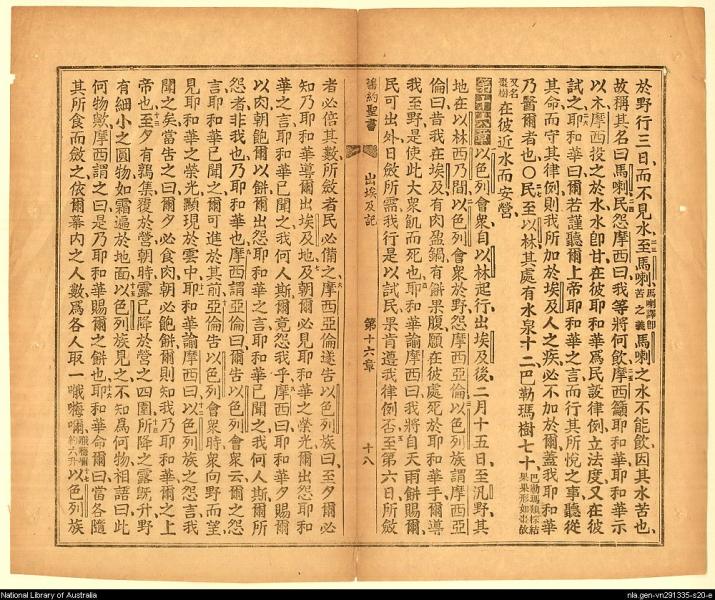 於野行三日而不見水至馬喇馬喇譯卽苦之義馬喇之水不能飲因其水苦也
故稱其名曰馬喇民怨摩西曰我等將何飲摩西籲耶和華耶和華示
以木摩西投之於水水卽甘在彼耶和華爲民設律例立法度又在彼
試之耶和華曰爾若謹聽爾上帝耶和華之言而行其所悅之事聽從
其命而守其律例則我所加於埃及人之疾必不加於爾蓋我耶和華
乃醫爾者也〇民至以林其處有水泉十二巴勒瑪樹七十巴勒瑪類棕結果果形如棗故
又名棗樹在彼近水而安營
第十六章以色列會衆自以林起行出埃及後二月十五日至汛野其
地在以林西乃間以色列會衆於野怨摩西亞倫以色列族謂摩西亞
倫曰昔我在埃及有肉盈鍋有餅果腹願在彼處死於耶和華手爾導
我至野是使此大衆飢而死也耶和華諭摩西曰我將自天雨餅賜爾
民可出外日斂所需我行是以試民果肯遵我律例否至第六日所斂
舊約聖書
出埃及記
第十六章
十八
者必倍其數所斂者民必備之摩西亞倫遂告以色列族曰至夕爾必
知乃耶和華導爾出埃及地及朝爾必見耶和華之榮光爾出怨耶和
華之言耶和華已聞之我何人斯爾竟怨我乎摩西曰耶和華夕賜爾
以肉朝飽爾以餅爾出怨耶和華之言耶和華已聞之我何人斯爾所
怨者非我也乃耶和華也摩西謂亞倫曰爾告以色列會衆云爾之怨
言耶和華已聞之爾可進於其前亞倫告以色列會衆時衆向野而望
見耶和華之榮光顯現於雲中耶和華諭摩西曰以色列族之怨言我
聞之矣當告之曰爾夕必食肉朝必飽餅爾則知我乃耶和華爾之上
帝也至夕有鶉集覆於營朝時露已降於營之四圍所降之露旣升野
有細小之圓物如霜遍於地面以色列族見之不知爲何物相語曰此
何物歟摩西謂之曰是乃耶和華賜爾之餅也耶和華命爾曰當各隨
其所食而斂之依爾幕內之人數爲各人取一